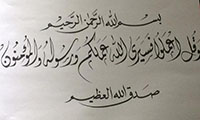 بسم الله الرحمن الرحيم
وقل اعملوا فسيرى الله عملكم ورسوله والمؤمنون
صدق الله العظيم